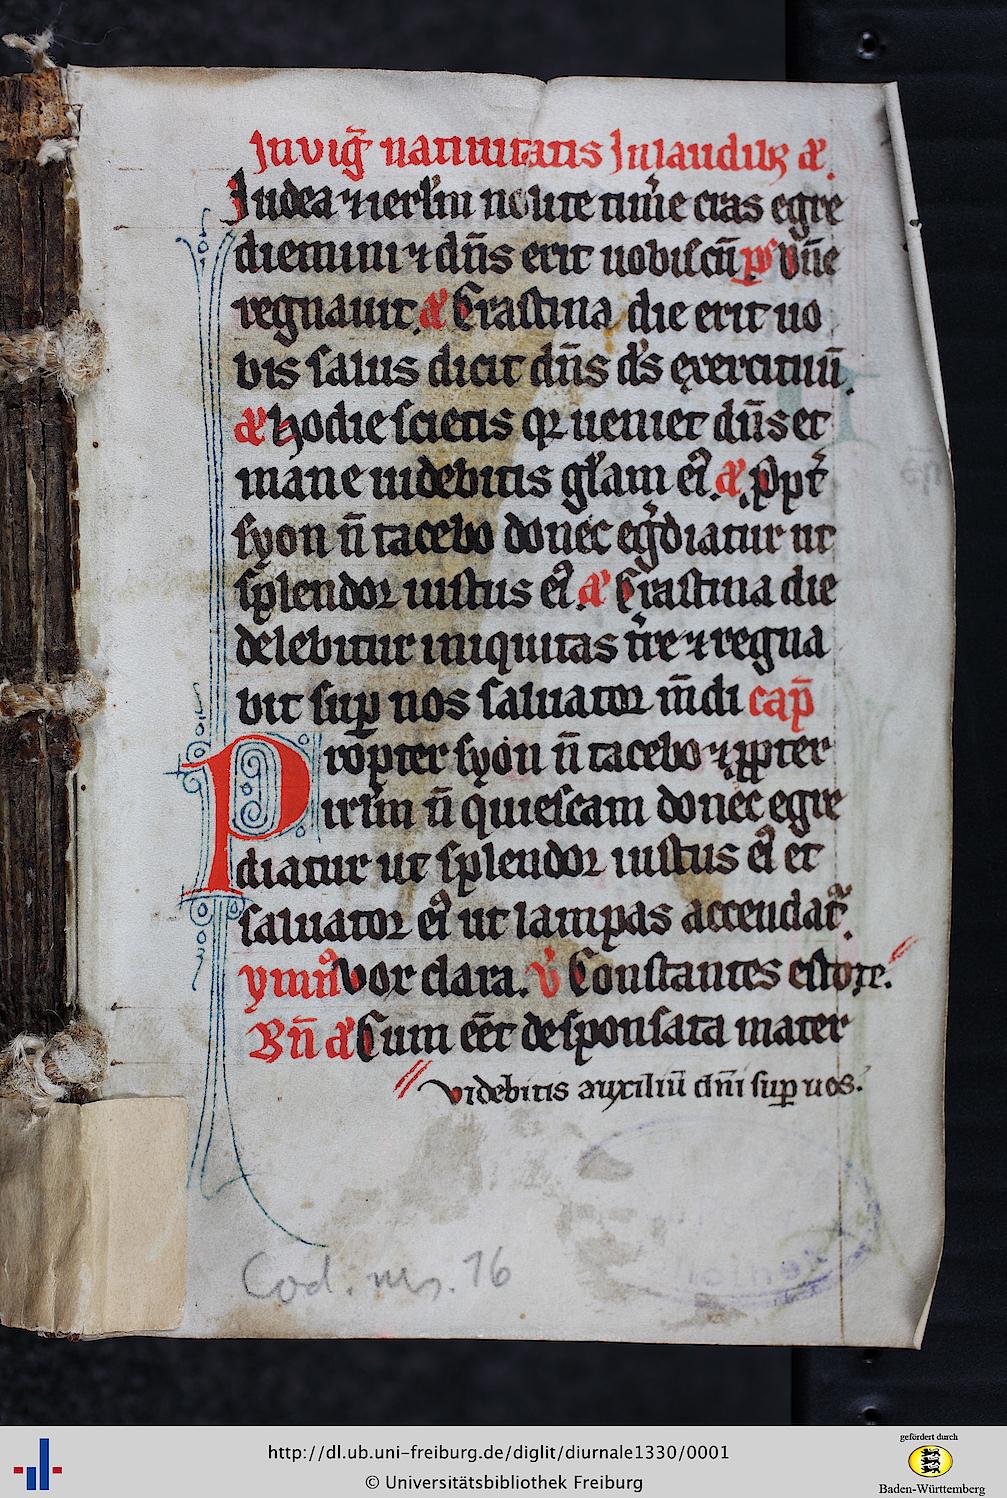 In vigͥ natiuitatis In laudibꝫ a᷒.
Iudea ⁊ ierlm̄ nolite timͤe cras egre
diemini ⁊ dn̄s erit uobiscū ps Dn̄e
regnauit. a᷒ Crastina die erit uo
bis salus dicit dn̄s ds̄ exercituū.
a᷒ Hodie scietis qꝛ ueniet dn̄s et
mane uidebitis glām eiꝰ. a᷒ ꝓpt̄
syon n̄ tacebo donec egͬdiatur ut
splendor iustus eiꝰ. a᷒ Crastina die
delebitur iniquitas tr̄e ⁊ regna
bit suꝑ nos saluator mūdi cap̄
Propter syon n̄ tacebo ⁊ ꝓpter
irlm̄ n̄ quiescam donec egre
diatur ut splendor iustus eiꝰ et
saluator eiꝰ ut lampas accendat᷑.
ymnꝰ Vox clara. v̄ Constantes estote.
Bn̄ a᷒ Cum eēt desponsata mater
videbitis auxiliū dn̄i suꝑ uos.
Cod. ms. 16
http://dl.ub.uni-freiburg.de/diglit/diurnale1330/0001
© Universitätsbibliothek Freiburg
gefördert durch
Baden-Württemberg